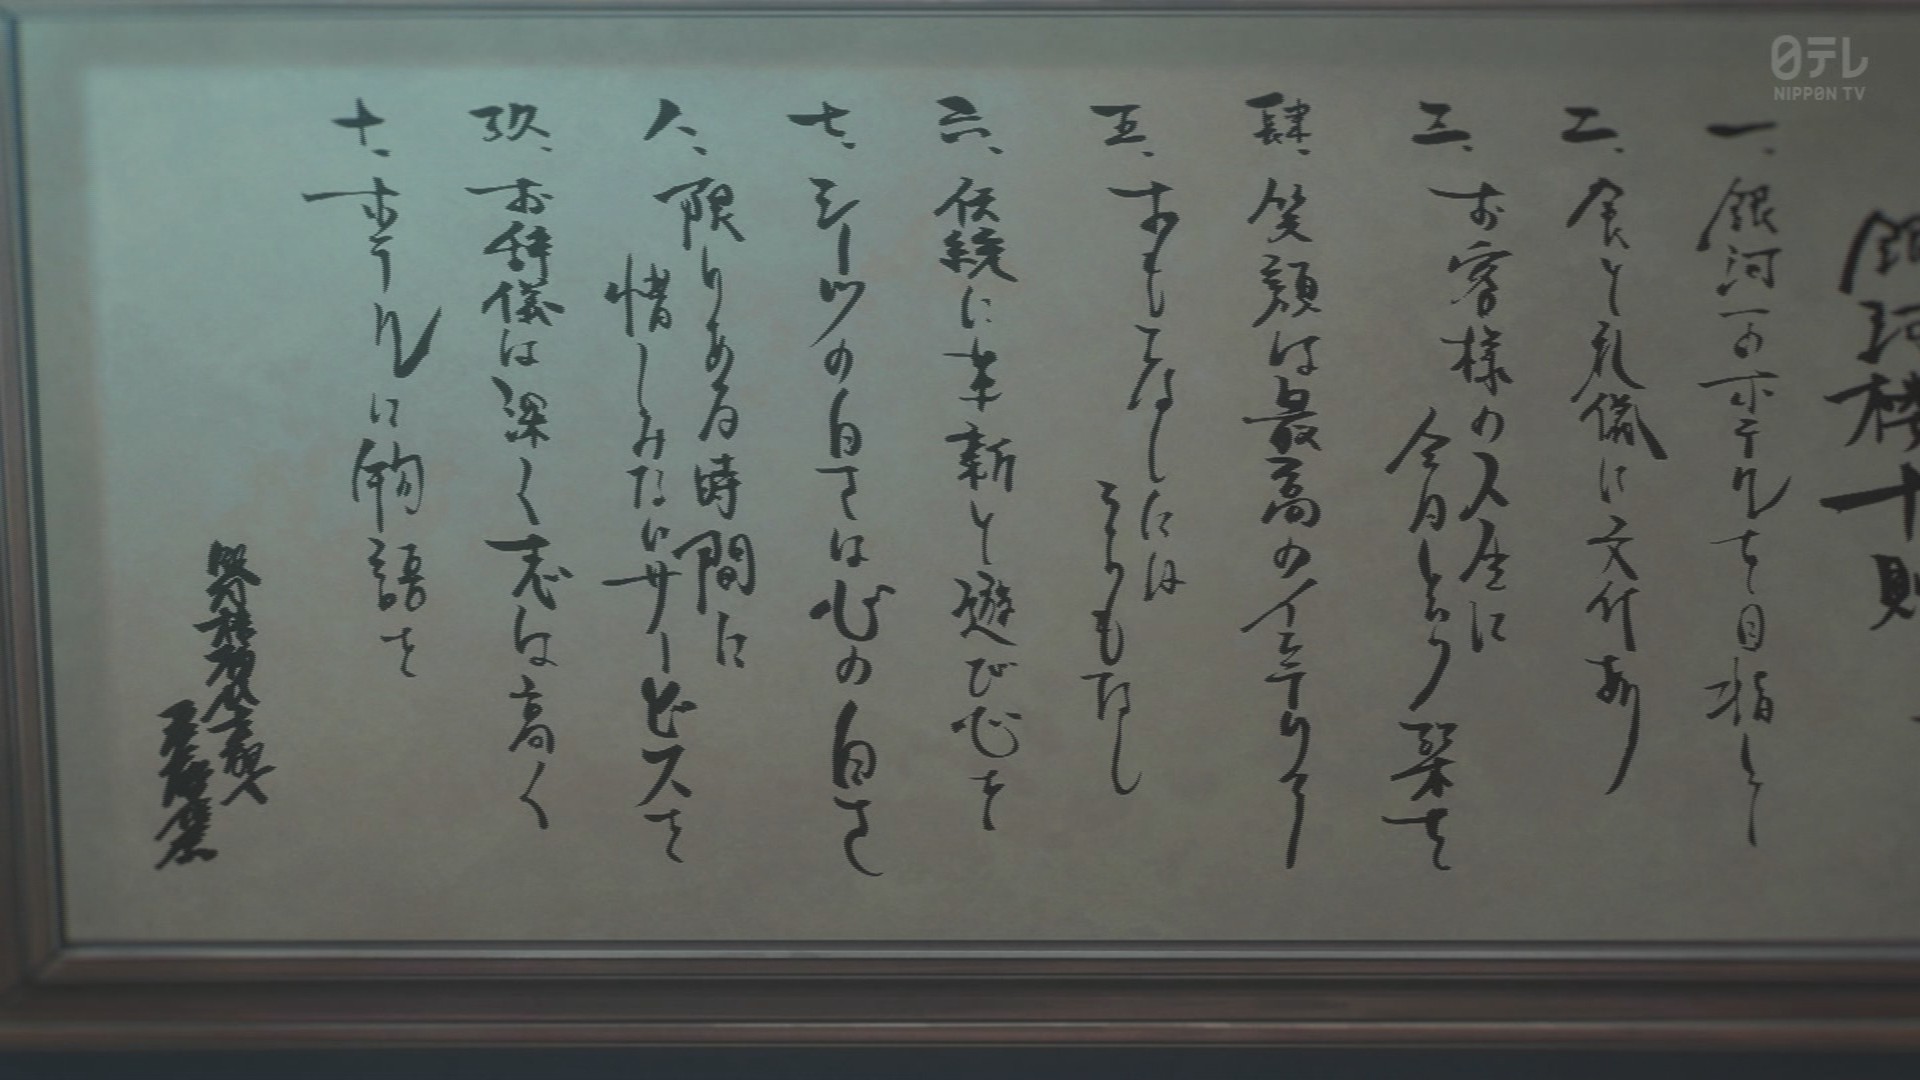 銀河楼十則
一、銀河一のホテルを目指して
二、食と礼儀に文化あり
三、お客様の人生に
今日という栞を
肆、笑顔は最高のインテリア
五、おもてなしには
うらもなし
六、伝統に革新と遊び心を
七、シーツの白さは心の白さ
八、限りある時間に
惜しみないサービスを
玖、お辞儀は深く志は高く
十、ホテルに物語を
日テレ
NIPPON TV